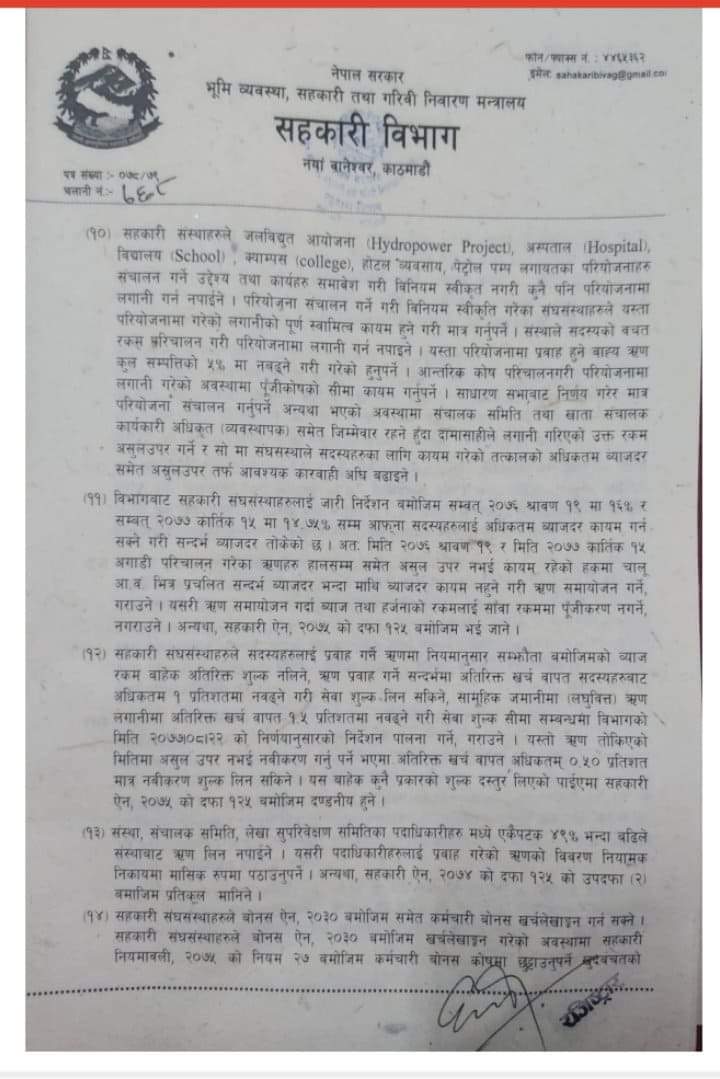 फोन/फ्याक्स नं. : ४४६५३६२
इमेल: sahakaribivag@gmail.com
नेपाल सरकार
भूमि व्यवस्था, सहकारी तथा गरिवी निवारण मन्त्रालय
सहकारी विभाग
नयाँ वानेश्वर, काठमाडौं
पत्र संख्या :- ०७८/७९
चलानी नं.:- ७६८
(१०) सहकारी संस्थाहरुले जलविद्युत आयोजना (Hydropower Project), अस्पताल (Hospital),
विद्यालय (School) , क्याम्पस (college), होटल व्यवसाय, पेट्रोल पम्प लगायतका परियोजनाहरु
संचालन गर्ने उद्देश्य तथा कार्यहरु समाबेश गरी विनियम स्वीकृत नगरी कुनै पनि परियोजनामा
लगानी गर्न नपाइने । परियोजना संचालन गर्ने गरी विनियम स्वीकृति गरेका संघसंस्थाहरुले यस्ता
परियोजनामा गरेको लगानीको पूर्ण स्वामित्व कायम हुने गरी मात्र गर्नुपर्ने । संस्थाले सदस्यको वचत
रकम परिचालन गरी परियोजनामा लगानी गर्न नपाइने । यस्ता परियोजनामा प्रवाह हुने वाह्य ऋण
कुल सम्पत्तिको ५% मा नबढ्ने गरी गरेको हुनुपर्ने । आन्तरिक कोष परिचालनगरी परियोजनामा
लगानी गरेको अवस्थामा पूँजीकोषको सीमा कायम गर्नुपर्ने । साधारण सभाबाट निर्णय गरेर मात्र
परियोजना संचालन गर्नुपर्ने अन्यथा भएको अवस्थामा संचालक समिति तथा खाता संचालक
कार्यकारी अधिकृत (व्यवस्थापक) समेत जिम्मेवार रहने हुँदा दामासाहीले लगानी गरिएको उक्त रकम
असुलउपर गर्ने र सो मा संघसंस्थाले सदस्यहरुका लागि कायम गरेको तत्कालको अधिकतम व्याजदर
समेत असुलउपर तर्फ आवश्यक कारवाही अघि बढाइने ।
(११) विभागबाट सहकारी संघसंस्थाहरुलाई जारी निर्देशन वमोजिम सम्बत् २०७६ श्रावण १९ मा १६% र
सम्बत् २०७७ कार्तिक १५ मा १४.७५% सम्म आफ्ना सदस्यहरुलाई अधिकतम व्याजदर कायम गर्न
सक्ने गरी सन्दर्भ व्याजदर तोकेको छ । अत: मिति २०७६ श्रावण १९ र मिति २०७७ कार्तिक १५
अगाडी परिचालन गरेका ऋणहरु हालसम्म समेत असुल उपर नभई कायम रहेको हकमा चालू
आ.व. भित्र प्रचलित सन्दर्भ व्याजदर भन्दा माथि व्याजदर कायम नहुने गरी ऋण समायोजन गर्ने,
गराउने । यसरी ऋण समायोजन गर्दा ब्याज तथा हर्जनाको रकमलाई साँवा रकममा पूँजीकरण नगर्ने,
नगराउने । अन्यथा, सहकारी ऐन, २०७५ को दफा १२५ बमोजिम भई जाने ।
(१२) सहकारी संघसंस्थाहरुले सदस्यहरुलाई प्रवाह गर्ने ऋणमा नियमानुसार सम्झौता बमोजिमको व्याज
रकम बाहेक अतिरिक्त शुल्क नलिने, ऋण प्रवाह गर्ने सन्दर्भमा अतिरिक्त खर्च वापत सदस्यहरुबाट
अधिकतम १ प्रतिशतमा नवढ्ने गरी सेवा शुल्क लिन सकिने, सामूहिक जमानीमा (लघुवित्त) ऋण
लगानीमा अतिरिक्त खर्च वापत १.५ प्रतिशतमा नवढ्ने गरी सेवा शुल्क सीमा सम्बन्धमा विभागको
मिति २०७७।०८।२२ को निर्णयानुसारको निर्देशन पालना गर्ने, गराउने । यस्तो ऋण तोकिएको
मितिमा असुल उपर नभई नबीकरण गर्नु पर्ने भएमा अतिरिक्त खर्च वापत अधिकतम् ०.५० प्रतिशत
मात्र नबीकरण शुल्क लिन सकिने । यस बाहेक कुनै प्रकारको शुल्क दस्तुर लिएको पाईएमा सहकारी
ऐन, २०७५ को दफा १२५ बमोजिम दण्डनीय हुने ।
(१३) संस्था, संचालक समिति, लेखा सुपरिवेक्षण समितिका पदाधिकारीहरु मध्ये एकैपटक ४९% भन्दा बढिले
संस्थाबाट ऋण लिन नपाईने । यसरी पदाधिकारीहरुलाई प्रवाह गरेको ऋणको विवरण नियामक
निकायमा मासिक रुपमा पठाउनुपर्ने । अन्यथा, सहकारी ऐन, २०७४ को दफा १२५ को उपदफा (२)
बमोजिम प्रतिकूल मानिने ।
(१४) सहकारी संघसंस्थाहरुले बोनस ऐन, २०३० बमोजिम समेत कर्मचारी बोनस खर्चलेखाङ्कन गर्न सक्ने ।
सहकारी संघसंस्थाहरुले बोनस ऐन, २०३० बमोजिम खर्चलेखाङ्कन गरेको अवस्थामा सहकारी
नियमावली, २०७५ को नियम २७ बमोजिम कर्मचारी बोनस कोषमा छुट्टाउनुपर्ने खुदबचतको
रजिष्ट्रार